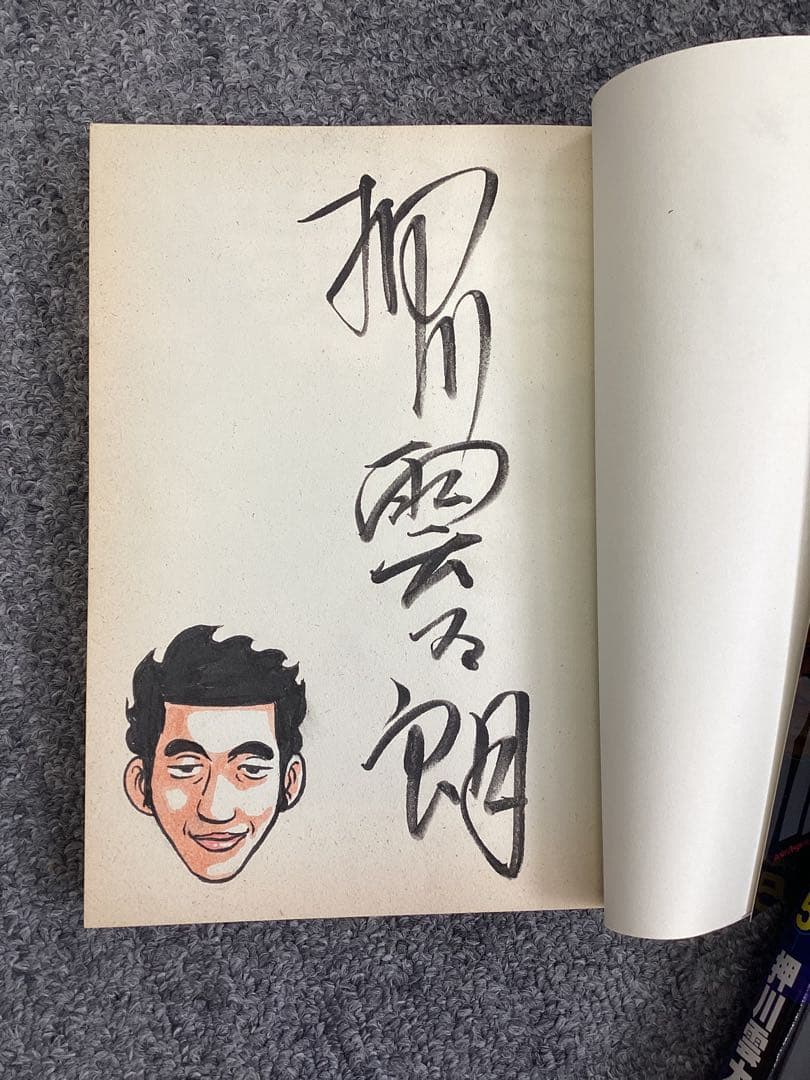 押川雲太朗
5
押川雲太